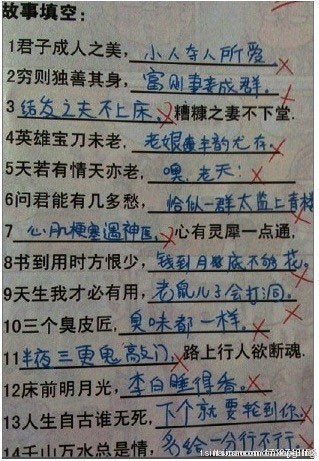 故事填空：
1君子成人之美，小人夺人所爱。
2穷则独善其身，富则妻妾成群。
3结发之夫不上床，糟糠之妻不下堂.
4英雄宝刀未老，老娘风韵尤存。
5天若有情天亦老，噢，老天！
6问君能有几多愁，恰似一群太监上青楼
7心肌梗塞遇神医，心有灵犀一点通，
8书到用时方恨少，钱到月底不够花。
9天生我才必有用，老鼠儿子会打洞。
10三个臭皮匠，臭味都一样。
11半夜三更鬼敲门，路上行人欲断魂.
12床前明月光，李白睡得香。
13人生自古谁无死，下个就要轮到你。
14千山万水总是情，多给一分行不行。